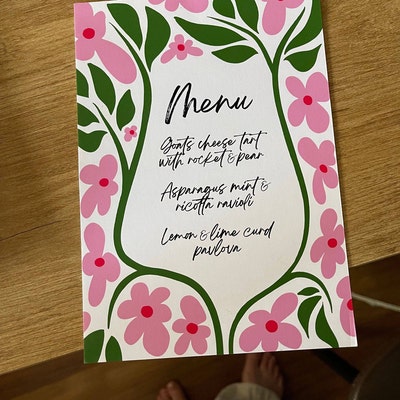 Menu
Goats cheese tart
with rocket & pear
Asparagus mint &
ricotta ravioli
Lemon & lime curd
pavlova